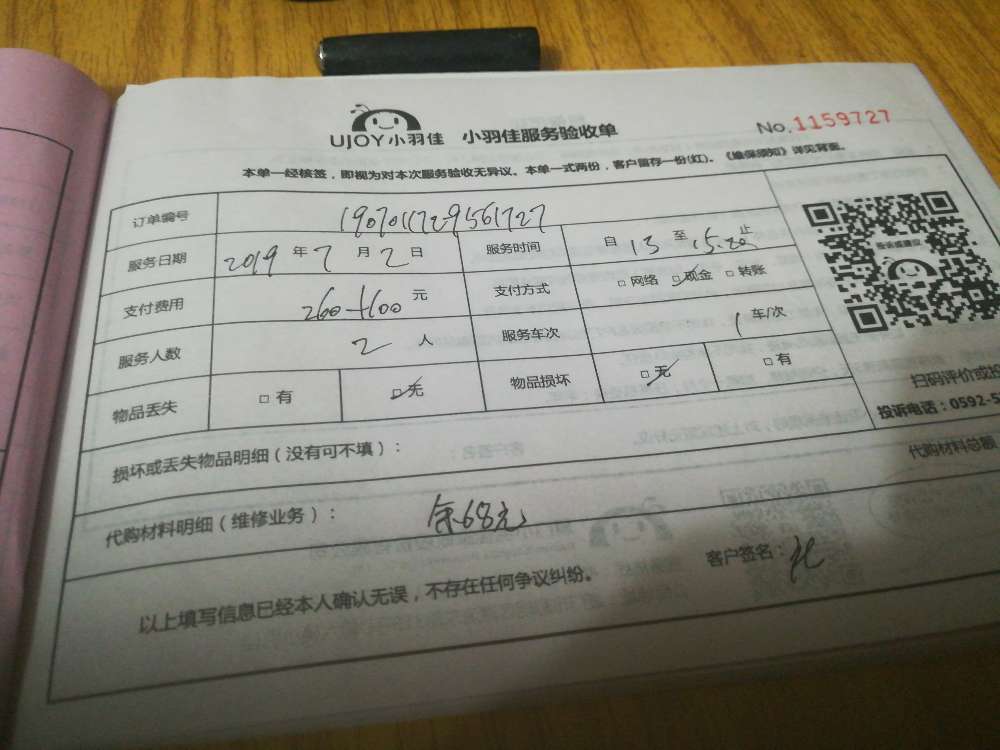 UJOY小羽佳 小羽佳服务验收单 No.1159727
本单一经核签，即视为对本次服务验收无异议。本单一式两份，客户留存一份(红)。《维保须知》详见背面。
订单编号 1907011729561727
服务日期 2019 年 7 月 2 日 服务时间 自 13 至 15:20 止
支付费用 260+100 元 支付方式 □ 网络 ☑ 现金 □ 转账
服务人数 2 人 服务车次 1 车/次
物品丢失 □ 有 ☑ 无 物品损坏 ☑ 无 □ 有
扫码评价或投
投诉电话：0592-5
损坏或丢失物品明细（没有可不填）：
代购材料总额
代购材料明细（维修业务）： 余68元
以上填写信息已经本人确认无误，不存在任何争议纠纷。 客户签名：